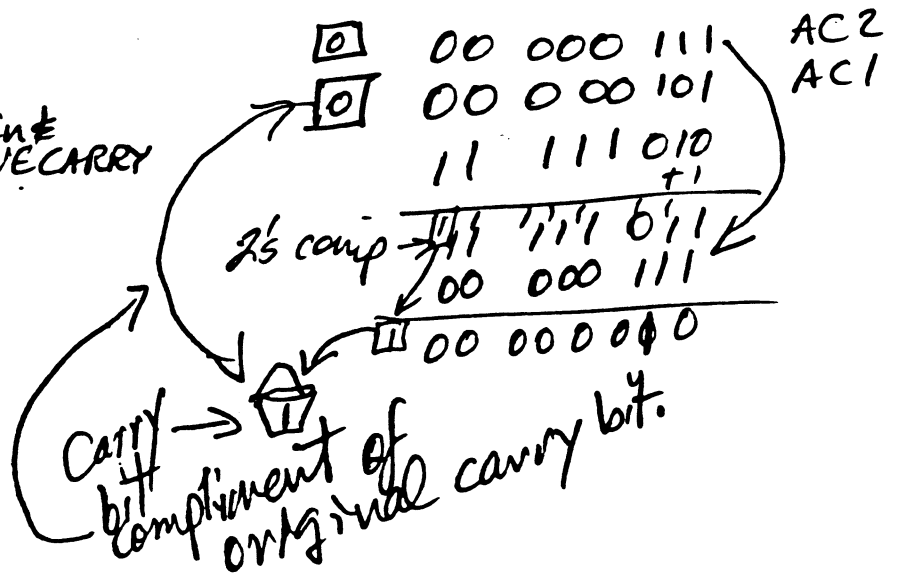 0 00 000 111 AC2
0 00 000 101 AC1
VECARRY
11 111 010
+1
2's comp → 11 111 011
00 000 111
1 00 000 0 0
Carry → 1
bit
compliment of
original carry bit.